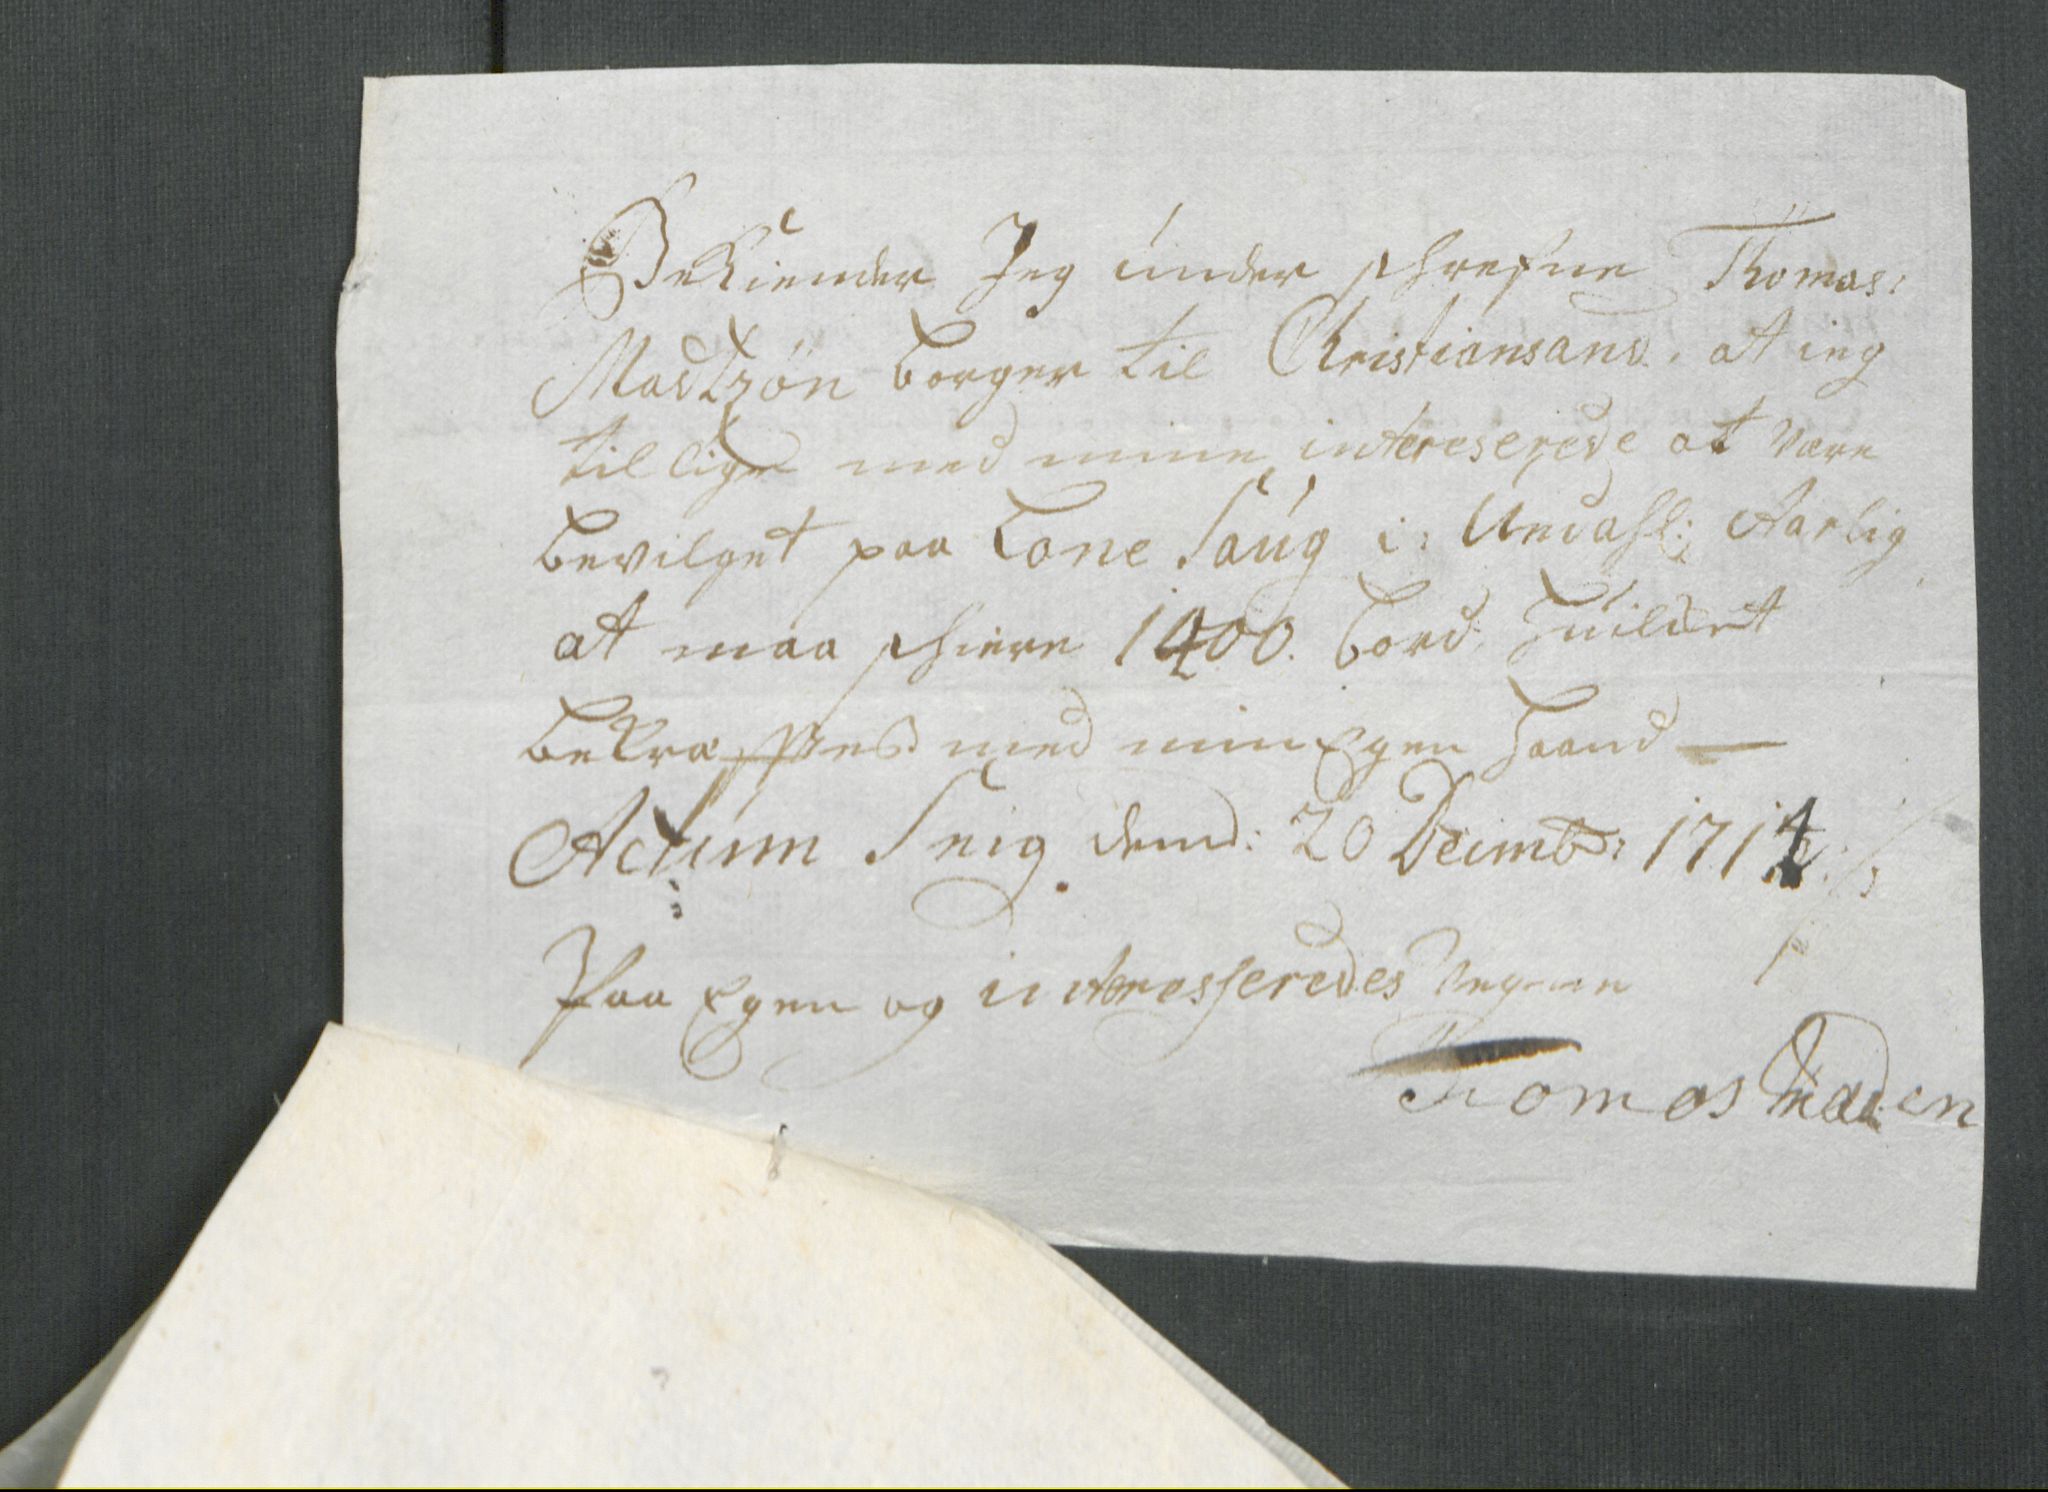 Bekiender Jeg under skrefne Thomas:
Madtzøn borger til Christiansand. at ieg
til lige med mine intereserede at være
bevilget paa Lone Saug i: Undahl: Aarlig
at maa skiere 1400. bord, huilcket
bekræfftes med min Egen haand —
Actum Snig dend: 20 Decimb: 1714
Paa Egen og interesseredes Vegne
Thomas Madsen